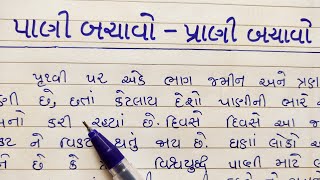 પાણી બચાવો - પ્રાણી બચાવો
પૃથ્વી પર એક ભાગ જમીન અને ત્રણ
છે, છતાં કેટલાય દેશો પાણીની ભારે
કરી રહ્યાં છે. દિવસે દિવસે આ
ને વિકટ થતું જાય છે. ઘણાં લોકો
છે કે વિશ્વયુદ્ધ પાણી માટે